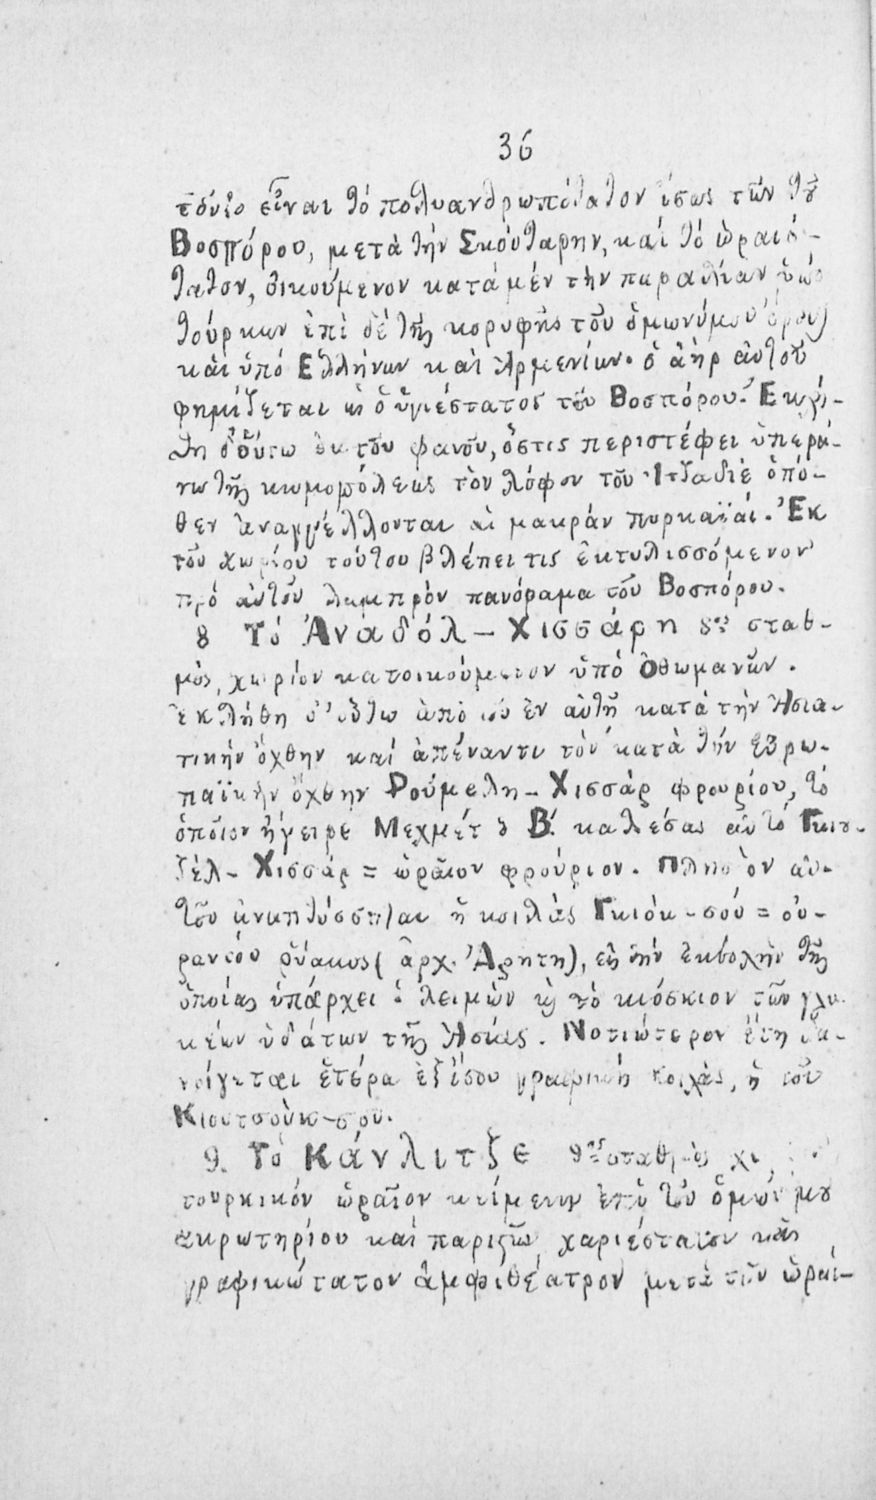 36
τοῦτο εἶναι τό πολυανθρωπότατον ἴσως τῶν τοῦ
Βοσπόρου, μετὰ τήν Σκούταρην, καί τό ὡραιό-
τατον, οἰκούμενον κατά μέν τὴν παραλίαν ὑπό
τούρκων ἐπὶ δέ τῆς κορυφῆς τοῦ ὁμωνύμου ὄρους
καὶ ὑπό Ἑλλήνων καὶ Ἀρμενίων. ὁ ἀὴρ αὐτοῦ
φημίζεται ὡς ὁ ὑγιέστατος τοῦ Βοσπόρου. Ἐκλή-
θη δ' οὕτω ἐκ τοῦ φανοῦ, ὅστις περιστέφει ὑπερά-
νω τῆς κωμοπόλεως τὸν λόφον τοῦ Ἰτζαδιέ ὁπό-
θεν ἀναγγέλλονται αἱ μακράν πυρκαϊαί. Ἐκ
τοῦ χωρίου τούτου βλέπει τις ἐκτυλισσόμενον
πρό αὐτοῦ λαμπρὸν πανόραμα τοῦ Βοσπόρου.
8 Τό Ἀναδόλ-Χισσάρη 8ος σταθ-
μὸς, χωρίον κατοικούμενον ὑπό Ὀθωμανῶν.
Ἐκλήθη δ' οὕτω ἀπὸ τοῦ ἐν αὐτῇ κατά τὴν Ἀσια-
τικήν ὄχθην καί ἀπέναντι τοῦ κατὰ τήν Εὐρω-
παϊκήν ὄχθην Ρούμελη-Χισσάρ φρουρίου, τό
ὁποῖον ἤγειρε Μεχμέτ ὁ Β΄. καλέσας αὐτό Γκιου-
ζέλ-Χισσάρ = ὡραῖον φρούριον. Πλησίον αὐ-
τοῦ ἀναπτύσσεται ἡ κοιλὰς Γκιόκ-σού = οὐ-
ρανίου ρύακος (ἀρχ. Ἀρητη), εἰς τήν ἐκβολὴν τῆς
ὁποίας ὑπάρχει ὁ λειμὼν καὶ τὸ κιόσκιον τῶν γλυ-
κέων ὑδάτων τῆς Ἀσίας. Νοτιώτερον ἔτι δα-
νοίγεται ἑτέρα ἐξίσου γραφικὴ κοιλὰς, ἡ τοῦ
Κιουτσοὺκ-σού.
9. Τὸ Κάνλιτζε 9ος σταθμὸς
τουρκικόν ὡραῖον κείμενον ἐπὶ τοῦ ὁμωνύμου
ἀκρωτηρίου καὶ παριστῶν χαριέστατον καὶ
γραφικώτατον ἀμφιθέατρον μετὰ τῶν ὡραί-